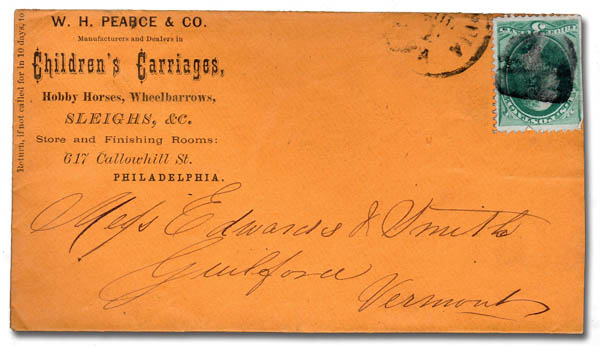 W. H. PEARCE & CO.
Manufacturers and Dealers in
Children's Carriages,
Hobby Horses, Wheelbarrows,
SLEIGHS, &C.
Store and Finishing Rooms:
617 Callowhill St.
PHILADELPHIA.
Return, if not called for in 10 days, to
Mess Edwards & Smith
Guilford
Vermont